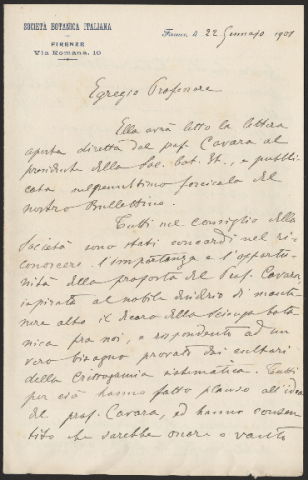 SOCIETÀ BOTANICA ITALIANA
FIRENZE
Via Romana, 19
Firenze, li 22 Gennaio 1901
Egregio Professore
Ella avrà letto la lettera
aperta diretta dal prof. Cavara al
presidente della Soc. bot. it., e pubbli
cata nel penultimo fascicolo del
nostro Bullettino.
Tutti nel consiglio della
Società sono stati concordi nel ri-
conoscere l'importanza e l'opportu-
nità della proposta del Prof. Cavara,
ispirata al nobile desiderio di mante
nere alto il decoro della scienza bota
nica fra noi, e rispondente ad un
vero bisogno provato dai cultori
della Crittogamia sistematica. Tutti
per ciò hanno fatto plauso all'idea
del prof. Cavara, ed hanno consen
tito che sarebbe onore e vanto